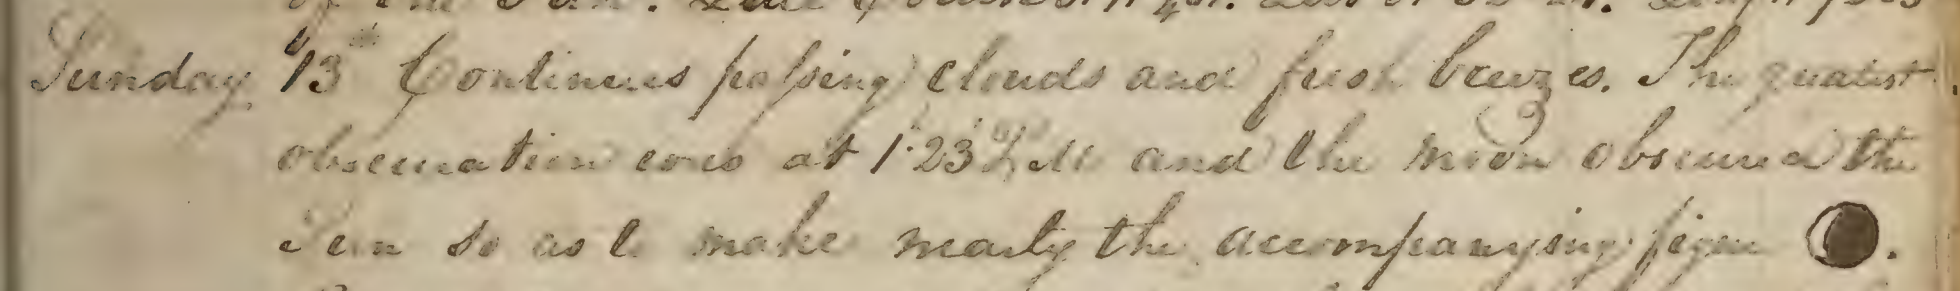 of the Sun.
Sunday 13th Continues passing clouds and fresh breezes. The greatest
obscuration was at 1.23 P.M and the moon obscured the
Sun so as to make nearly the accompanying figure .